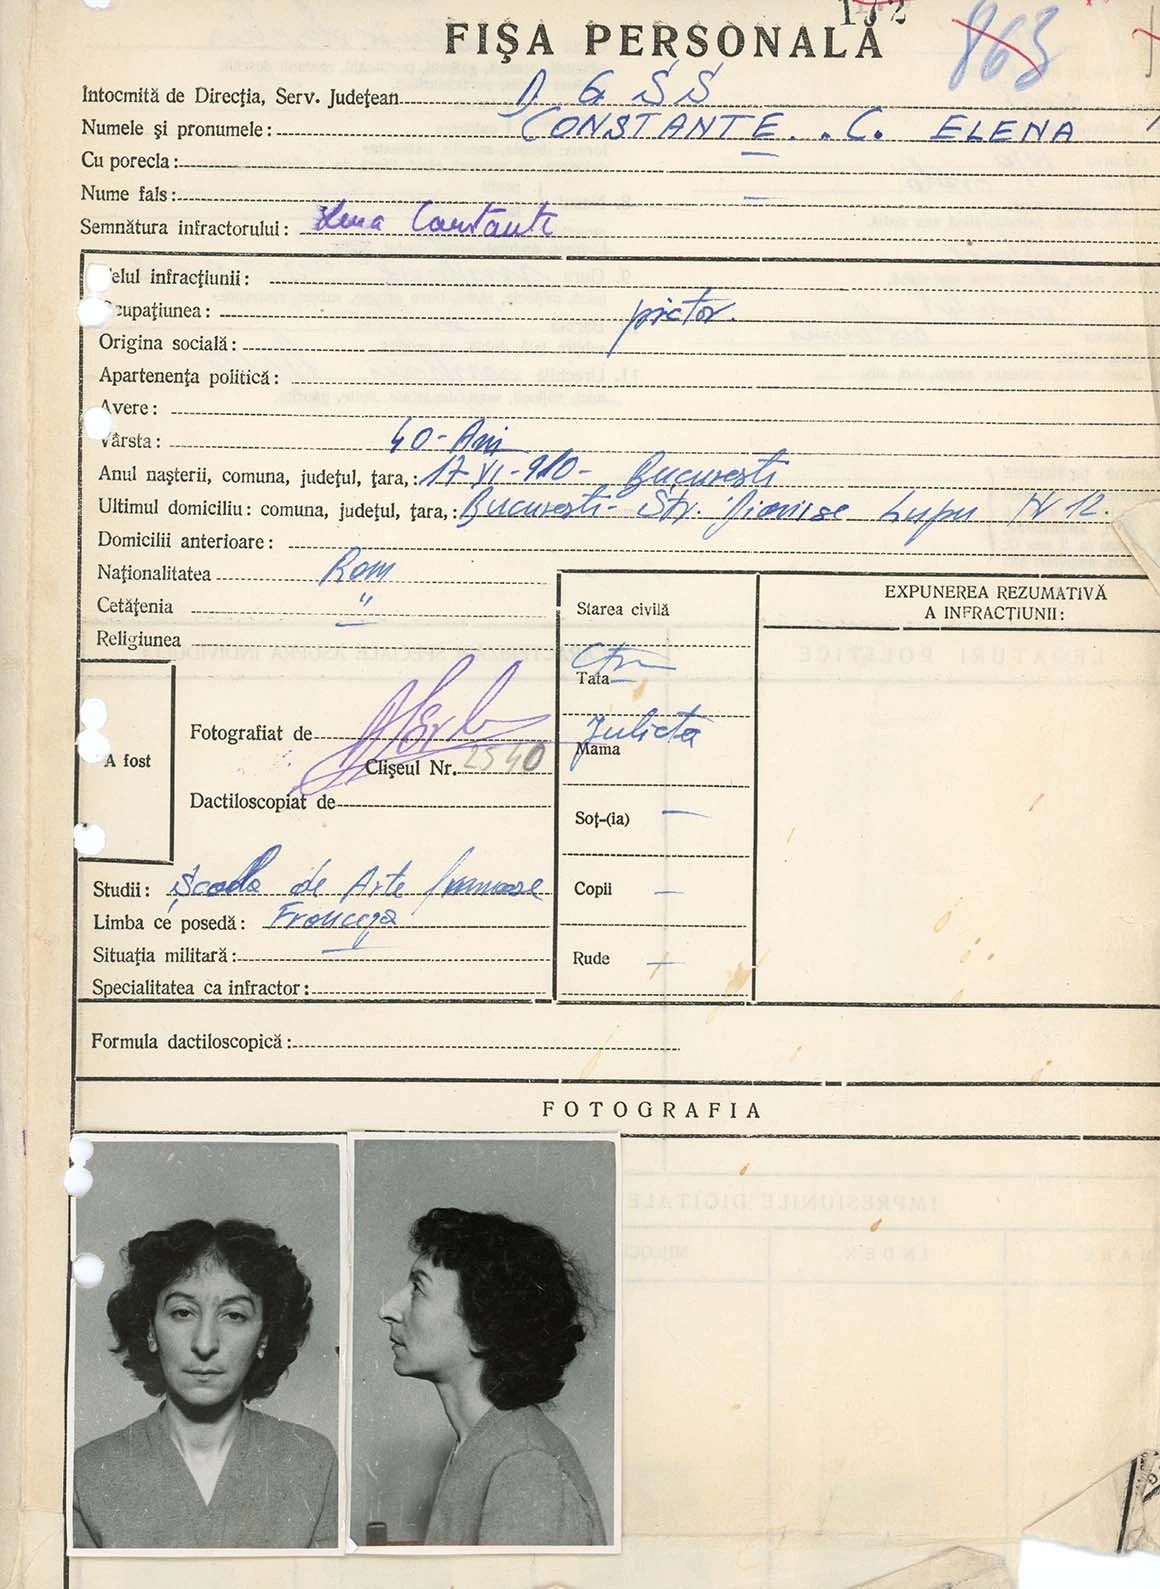 172
863
FIȘA PERSONALĂ
Intocmită de Direcția, Serv. Județean D G S S
Numele și pronumele: CONSTANTE . . C. ELENA
Cu porecla: —
Nume fals: —
Semnătura infractorului: Lena Constante
elul infracțiunii:
cupațiunea: pictor.
Origina socială:
Apartenența politică:
Avere:
Vârsta: 40 - Ani
Anul nașterii, comuna, județul, țara,: 17-VI-910- București
Ultimul domiciliu: comuna, județul, țara,: București- Str. Dionise Lupu Nr 12.
Domicilii anterioare:
Naționalitatea Rom
Cetățenia "
Religiunea —
Starea civilă
Tata
Mama Julieta
Soț-(ia) —
Copii —
Rude —
EXPUNEREA REZUMATIVĂ
A INFRACȚIUNII:
A fost
Fotografiat de
Clișeul Nr. 2540
Dactiloscopiat de
Studii: Școala de Arte frumoase
Limba ce posedă: Franceza
Situația militară: —
Specialitatea ca infractor:
Formula dactiloscopică:
FOTOGRAFIA